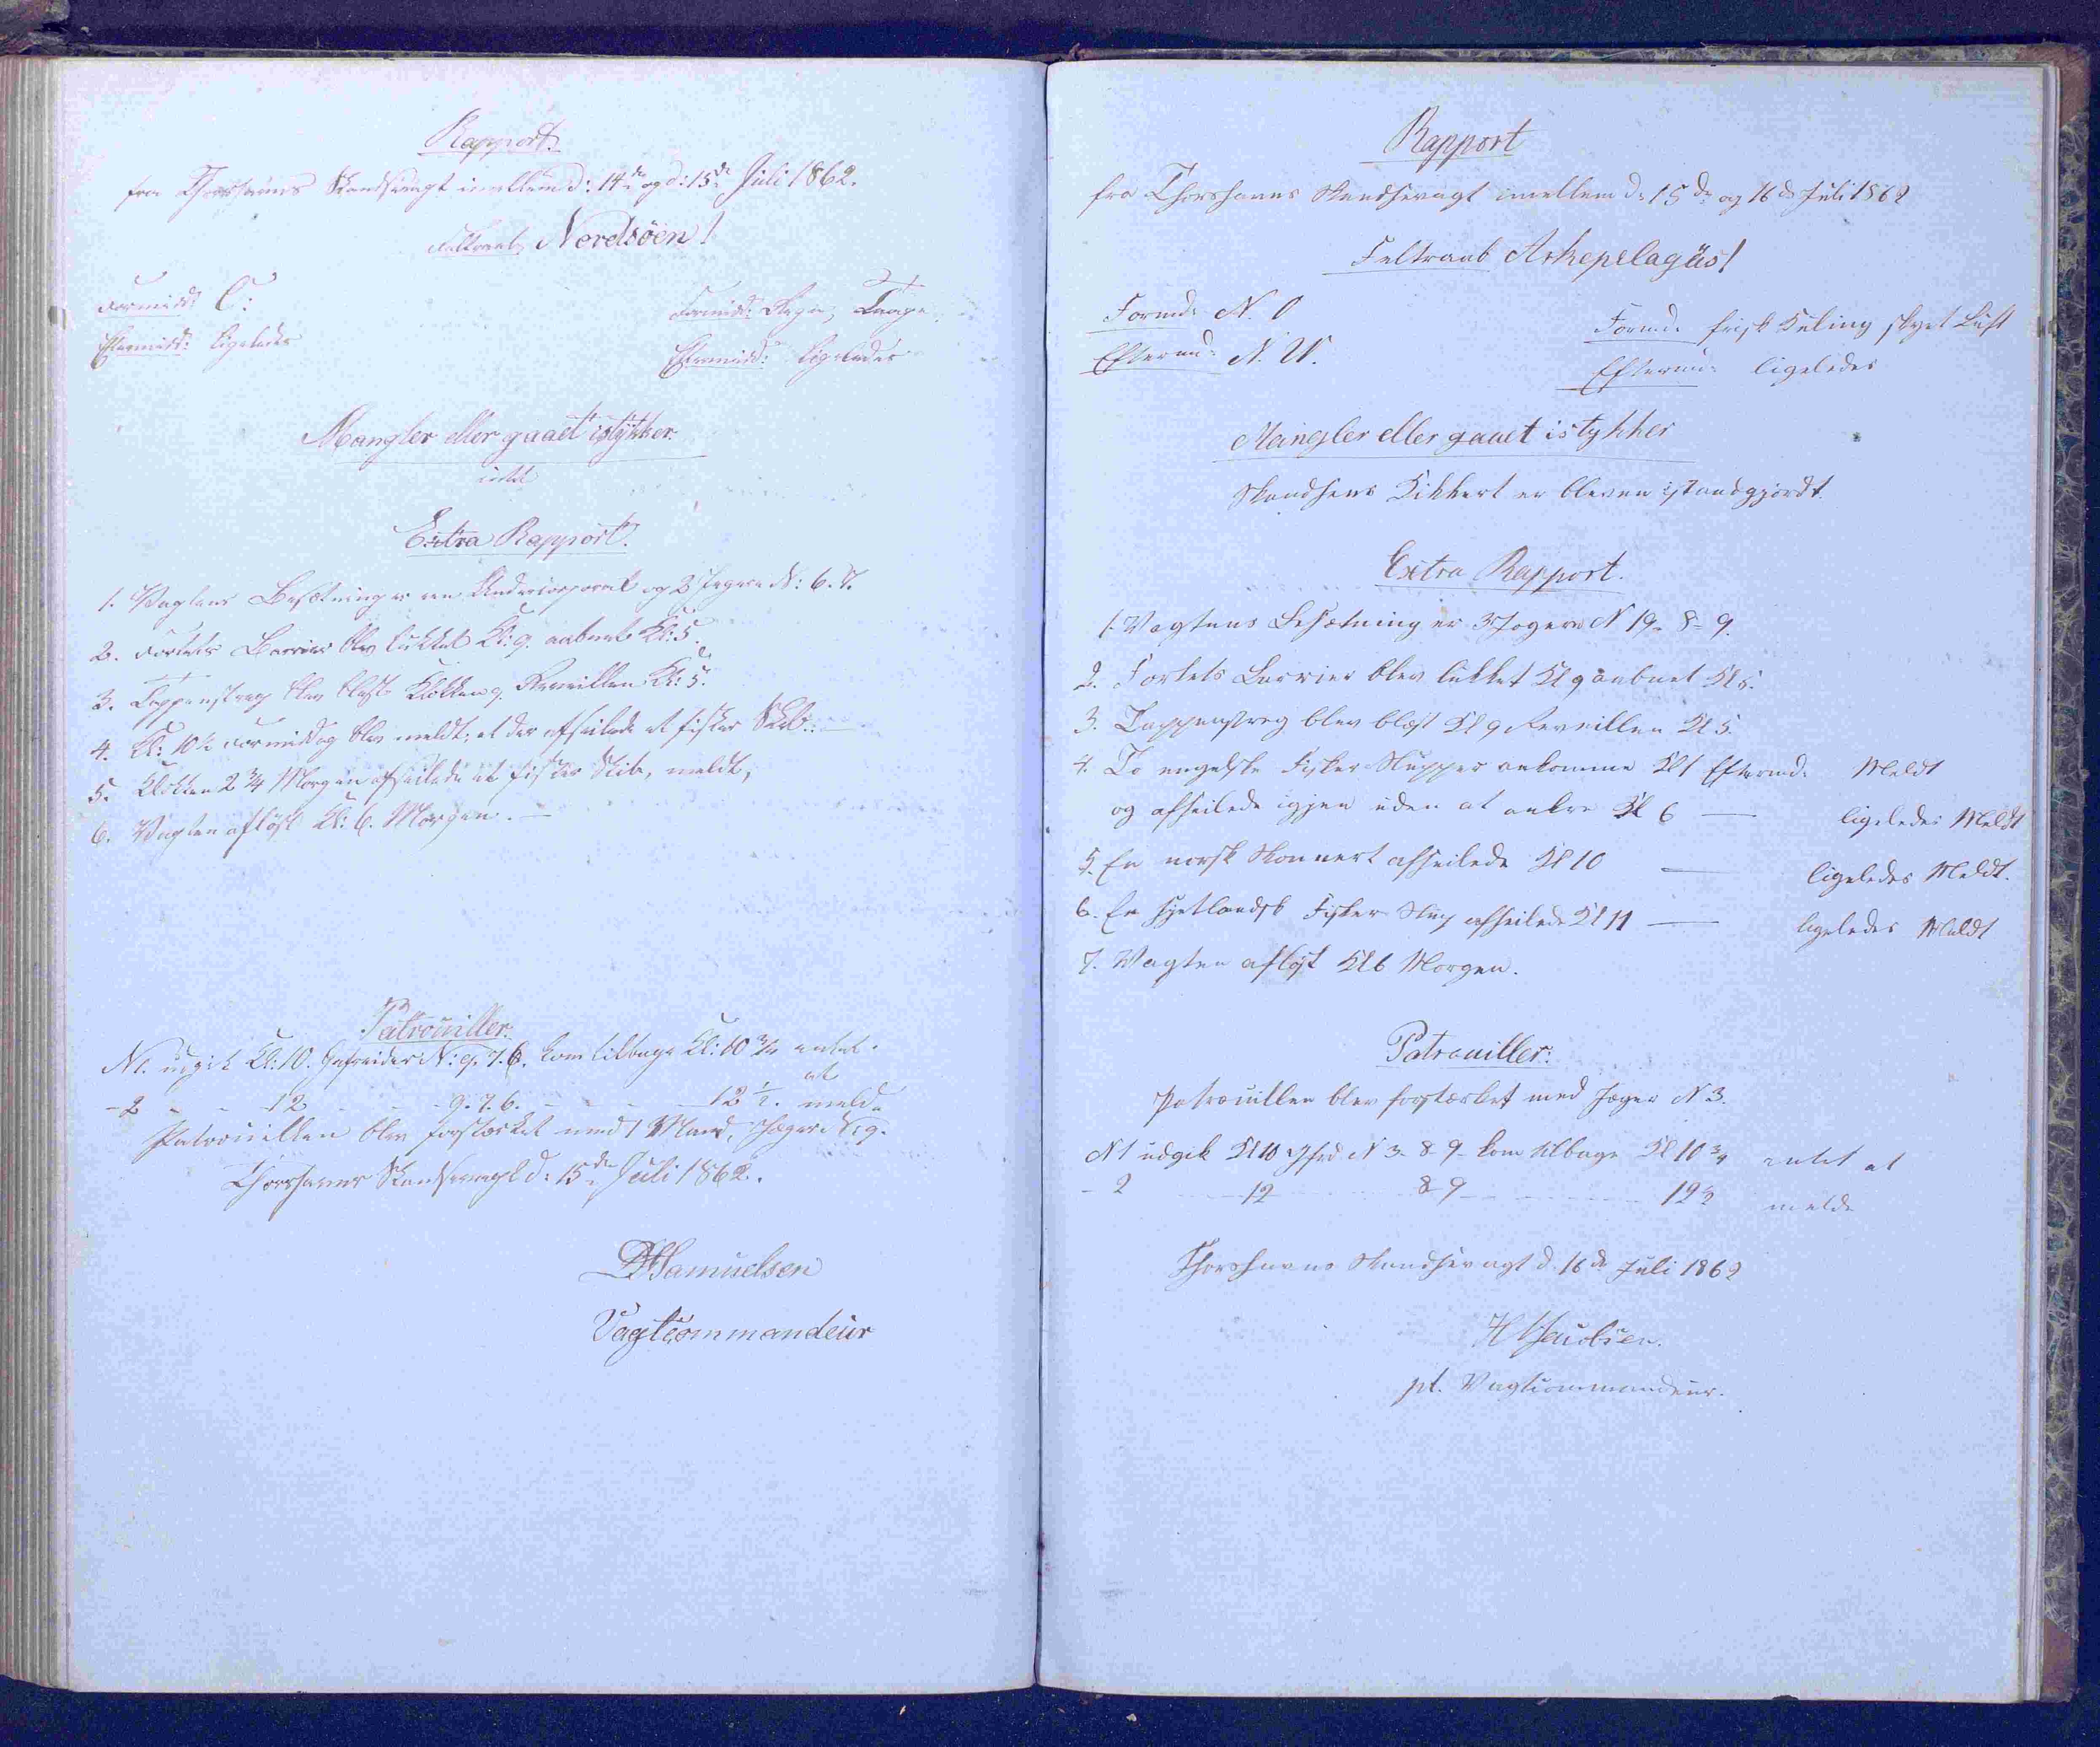 Rapport
fra Thorshavns Skandsevagt imellem d: 14de og d: 15de Juli 1862.
Feltraab Nordsöen!
Formidd: O:
Eftermidd: ligeledes
Formidd: Regn, Taage
Eftermidd: ligeledes
Mangler eller gaaet istykker.
intet
Extra Rapport.
1. Vagtens Besætning er een Undercorporal og 2 Jægere N: 6. 7.
2. Fortets Barrier blev lukket Kl: 9. aabnet Kl: 5.
3. Tappenstreg blev blæst Klokken 9. Reveillen Kl: 5.
4. Kl: 10½ Formiddag blev meldt, at der afseilede et fisker Skib. —
5. Klokken 2¾ Morgen afseilede et fisker Skib, meldt,
6. Vagten aflöst Kl: 6. Morgen. —
Patrouiller.
N1. udgik Kl: 10. Gefreider N: 9. 7. 6. kom tilbage Kl: 10¾ intet
at
- 2 - - 12 - - - 9. 7. 6. - - - - 12½. melde
Patrouillen blev forstærket med 1 Mand, Jæger N: 9.
Thorshavns Skandsevagt d: 15de Juli 1862.
Samuelsen
Vagtcommandeur
Rapport
fra Thorshavns Skandsevagt imellem d: 15de og 16de Juli 1862
Feltraab Arkepelagüs!
Formd: N. O
Eftermd: N. W.
Formd. frisk Kuling skyet Luft
Eftermd: ligeledes
Mangler eller gaaet istykker
Skandsens Kikkert er bleven istandgjordt.
Extra Rapport.
1. Vagtens Besætning er 3 Jægere N 19- 8- 9.
2. Fortets Barrier blev lukket Kl 9 aabnet Kl 5.
3. Tappenstreg blev blæst Kl 9 Reveillen Kl 5.
4. To engelske Fisker Slupper ankomme Kl 1 Eftermd: Meldt
og afseilede igjen uden at ankre Kl 6 — ligeledes Meldt
5. En norsk Skonnert afseilede Kl 10 — ligeledes Meldt.
6. En hjetlandsk Fisker Slup afseilede Kl 11 — ligeledes Meldt
7. Vagten aflöst Kl 6 Morgen.
Patrouiller:
Patrouillen blev forstærket med Jæger N 3.
N 1 udgik Kl 10 Gfrd N 3- 8 9- kom tilbage Kl 10¾ intet at
- 2 - - - 12 - - - 8 9 - - - - 12½ melde
Thorshavns Skandsevagt d. 16de Juli 1862
Jacobsen.
pt. Vagtcommandeur.